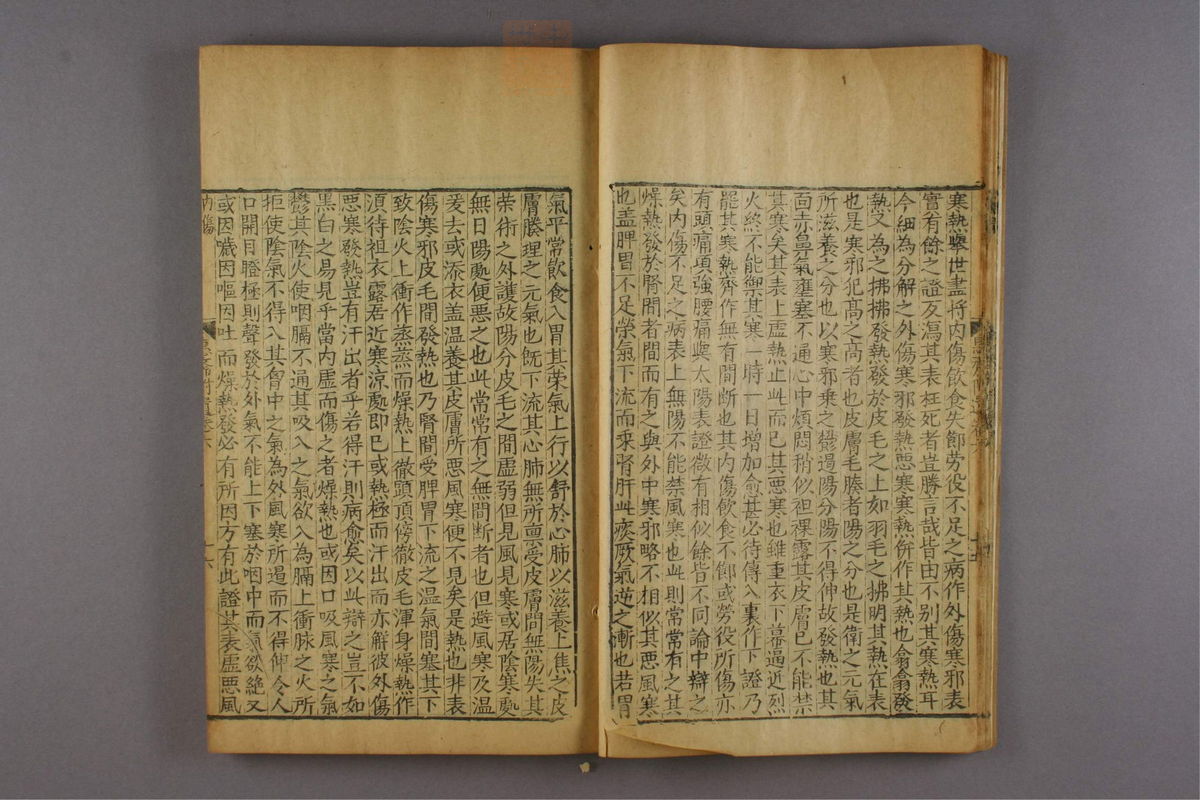 寒熱舉世盡將內傷飲食失節勞役不足之病作外傷寒邪表
實有餘之證反瀉其表枉死者豈勝言哉皆由不别其寒熱耳
今細為分解之外傷寒邪發熱惡寒寒熱併作其熱也翕翕發
熱又為之拂拂發熱發於皮毛之上如羽毛之拂明其熱在表
也是寒邪犯高之高者也皮膚毛腠者陽之分也是衛之元氣
所滋養之分也以寒邪乗之鬱遏陽分陽不得伸故發熱也其
面赤鼻氣壅塞不通心中煩悶稍似袒裸露其皮膚已不能禁
其寒矣其表上虚熱止此而已其惡寒也雖重衣下幕逼近烈
火終不能禦其寒一時一日增加愈甚必待傳入裏作下證乃
罷其寒熱齊作無有間断也其内傷飲食不節或勞役所傷亦
有頭痛項強腰痛與太陽表證微有相似餘皆不同論中辯之
矣内傷不足之病表上無陽不能禁風寒也此則常常有之其
燥熱發於腎間者間而有之與外中寒邪略不相似其惡風寒
也盖脾胃不足榮氣下流而乗腎肝此痿厥氣逆之漸也若胃
氣平常飲食入胃其榮氣上行以舒於心肺以滋養上焦之皮
膚腠理之元氣也既下流其心肺無所禀受皮膚間無陽失其
榮術之外護故陽分皮毛之間虚弱但見風見寒或居陰寒處
無日陽處便惡之也此常常有之無間断者也但避風寒及温
煖去或添衣盖温養其皮膚所惡風寒便不見矣是熱也非表
傷寒邪皮毛間發熱也乃腎間受脾胃下流之温氣間塞其下
致陰火上衝作蒸蒸而燥熱上徹頭頂傍徹皮毛渾身燥熱作
湏待袒衣露居近寒凉處即已或熱極而汗出而亦解彼外傷
惡寒發熱豈有汗出者乎若得汗則病愈矣以此辯之豈不如
黑白之易見乎當内虚而傷之者燥熱也或因口吸風寒之氣
鬱其陰火使咽膈不通其吸入之氣欲入為膈上衝脉之火所
拒使陰氣不得入其胷中之氣為外風寒所遏而不得伸令人
口開目瞪極則聲發於外氣不能上下塞於咽中而氣欲絶又
或因噦因嘔因吐而燥熱發必有所因方有此證其表虚惡風
内傷